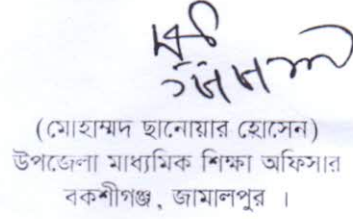 (মোহাম্মদ ছানোয়ার হোসেন)
উপজেলা মাধ্যমিক শিক্ষা অফিসার
বকশীগঞ্জ, জামালপুর ।